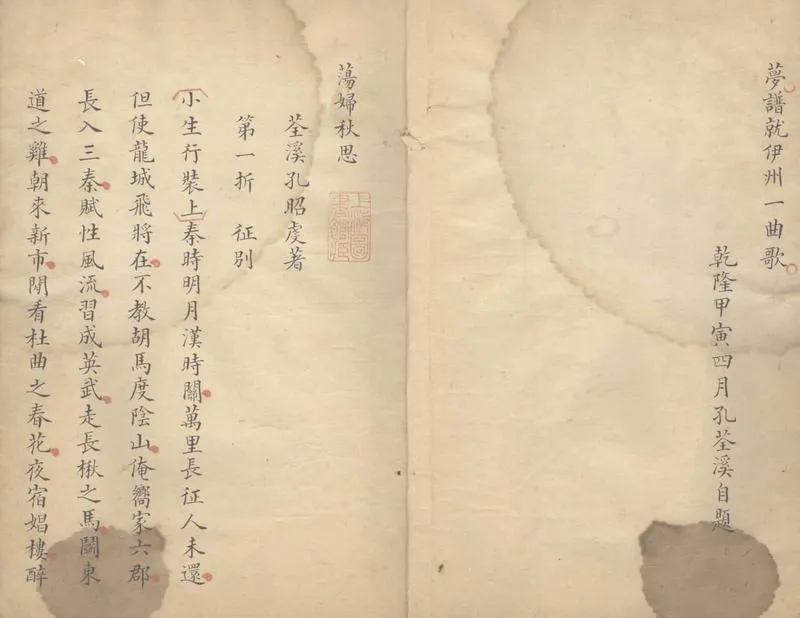 夢譜就伊州一曲歌
乾隆甲寅四月孔荃溪自題
蕩婦秋思
荃溪孔昭虔著
第一折 征別
小生行裝上秦時明月漢時關萬里長征人未還
但使龍城飛將在不教胡馬度陰山俺嚮家六郡
長入三秦賦性風流習成英武走長楸之馬鬪東
道之雞朝來新市閒看杜曲之春花夜宿娼樓醉